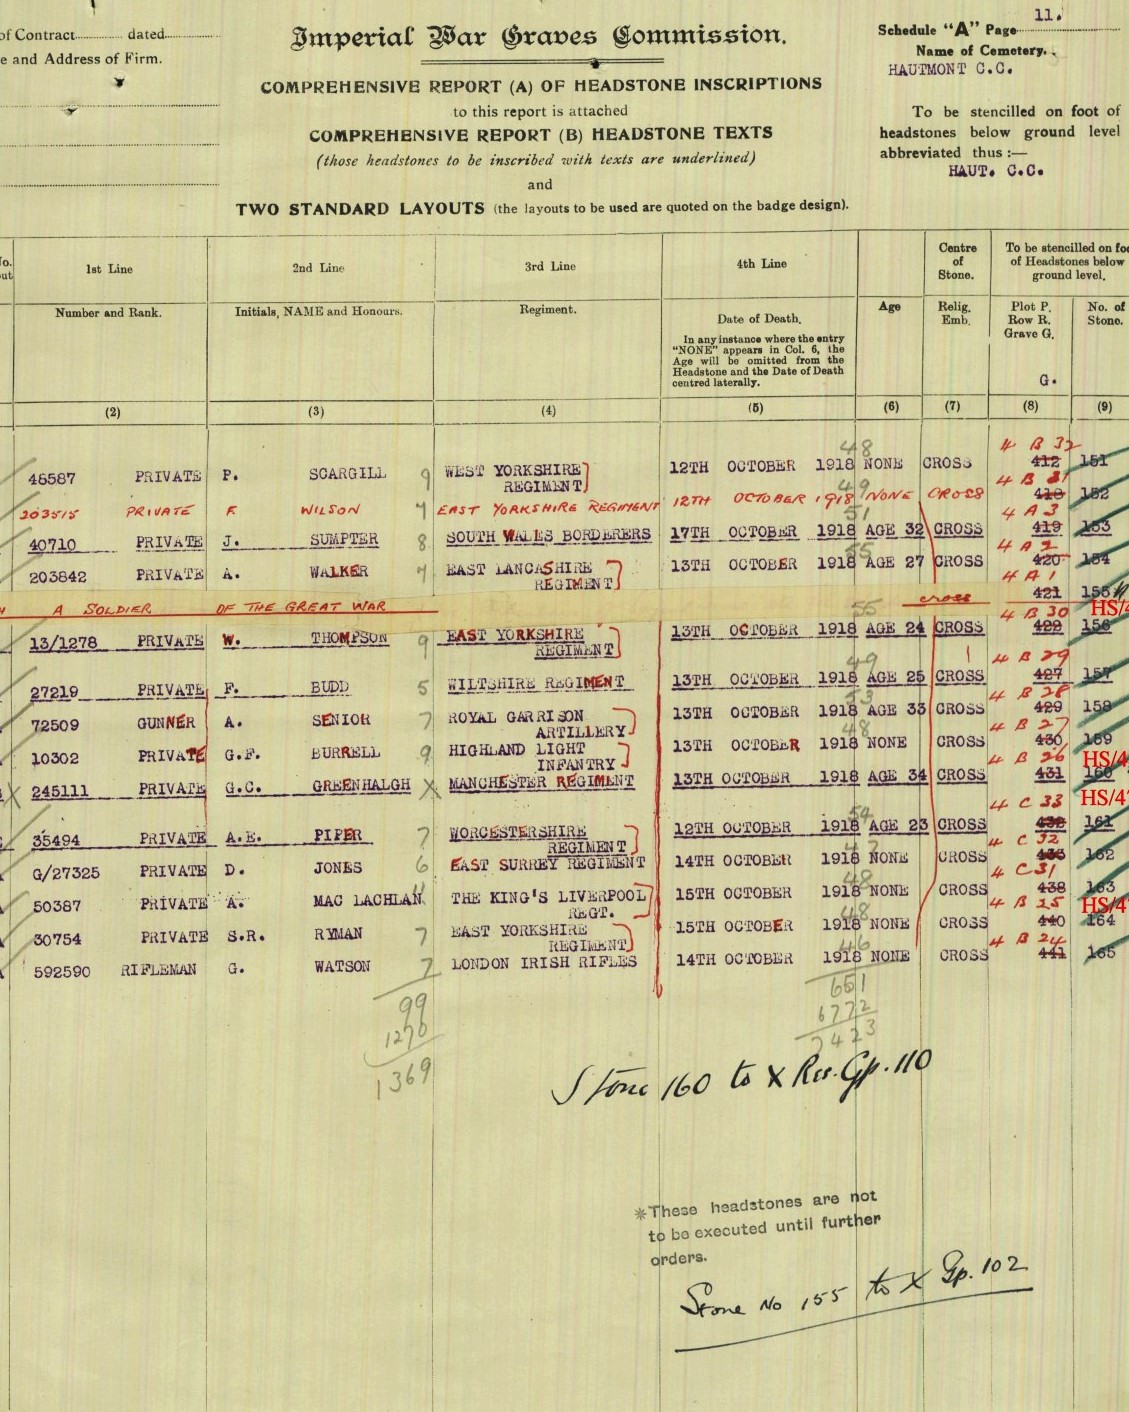 of Contract dated
e and Address of Firm.
Imperial War Graves Commission.
COMPREHENSIVE REPORT (A) OF HEADSTONE INSCRIPTIONS
to this report is attached
COMPREHENSIVE REPORT (B) HEADSTONE TEXTS
(those headstones to be inscribed with texts are underlined)
and
TWO STANDARD LAYOUTS (the layouts to be used are quoted on the badge design).
11.
Schedule "A" Page
Name of Cemetery.
HAUTMONT C.C.
To be stencilled on foot of
headstones below ground level
abbreviated thus :—
HAUT. C.C.
1st Line 2nd Line 3rd Line 4th Line Centre of Stone. To be stencilled on foo of Headstones below ground level.
Number and Rank. Initials, NAME and Honours. Regiment. Date of Death. Age Relig. Emb. Plot P. Row R. Grave G. No. of Stone.
In any instance where the entry
"NONE" appears in Col. 6, the
Age will be omitted from the
Headstone and the Date of Death
centred laterally.
G.
(2) (3) (4) (5) (6) (7) (8) (9)
48
4 B 32
46587 PRIVATE P. SCARGILL 9 WEST YORKSHIRE REGIMENT 12TH OCTOBER 1918 NONE CROSS 412 151
49
4 B 31
203515 PRIVATE F. WILSON 7 EAST YORKSHIRE REGIMENT 12TH OCTOBER 1918 NONE CROSS 418 152
51
4 A 3
40710 PRIVATE J. SUMPTER 8 SOUTH WALES BORDERERS 17TH OCTOBER 1918 AGE 32 CROSS 419 153
55
4 A 2
203842 PRIVATE A. WALKER 7 EAST LANCASHIRE REGIMENT 13TH OCTOBER 1918 AGE 27 CROSS 420 154
4 A 1
421 155
A SOLDIER OF THE GREAT WAR cross HS/4
55
4 B 30
13/1278 PRIVATE W. THOMPSON 9 EAST YORKSHIRE REGIMENT 13TH OCTOBER 1918 AGE 24 CROSS 156
49
4 B 29
27219 PRIVATE F. BUDD 5 WILTSHIRE REGIMENT 13TH OCTOBER 1918 AGE 25 CROSS 427 157
53
4 B 28
72509 GUNNER A. SENIOR 7 ROYAL GARRISON ARTILLERY 13TH OCTOBER 1918 AGE 33 CROSS 429 158
48
4 B 27
10302 PRIVATE G.F. BURRELL 9 HIGHLAND LIGHT INFANTRY 13TH OCTOBER 1918 NONE CROSS 430 159
4 B 26 HS/4
245111 PRIVATE G.C. GREENHALGH X MANCHESTER REGIMENT 13TH OCTOBER 1918 AGE 34 CROSS 431 160
HS/47
54
4 C 33
35494 PRIVATE A.E. PIPER 7 WORCESTERSHIRE REGIMENT 12TH OCTOBER 1918 AGE 23 CROSS 161
4 C 32
G/27325 PRIVATE D. JONES 6 EAST SURREY REGIMENT 14TH OCTOBER 1918 NONE CROSS 162
48
4 C 31
50387 PRIVATE A. MAC LACHLAN THE KING'S LIVERPOOL REGT. 15TH OCTOBER 1918 NONE CROSS 438 163
48
4 B 25 HS/4
30754 PRIVATE S.R. RYMAN 7 EAST YORKSHIRE REGIMENT 15TH OCTOBER 1918 NONE CROSS 440 164
46
4 B 24
592590 RIFLEMAN G. WATSON 7 LONDON IRISH RIFLES 14TH OCTOBER 1918 NONE CROSS 441 165
99 651
1270 6772
1369 7423
Stone 160 to X Res. Gp. 110
*These headstones are not
to be executed until further
orders.
Stone No 155 to X Gp. 102